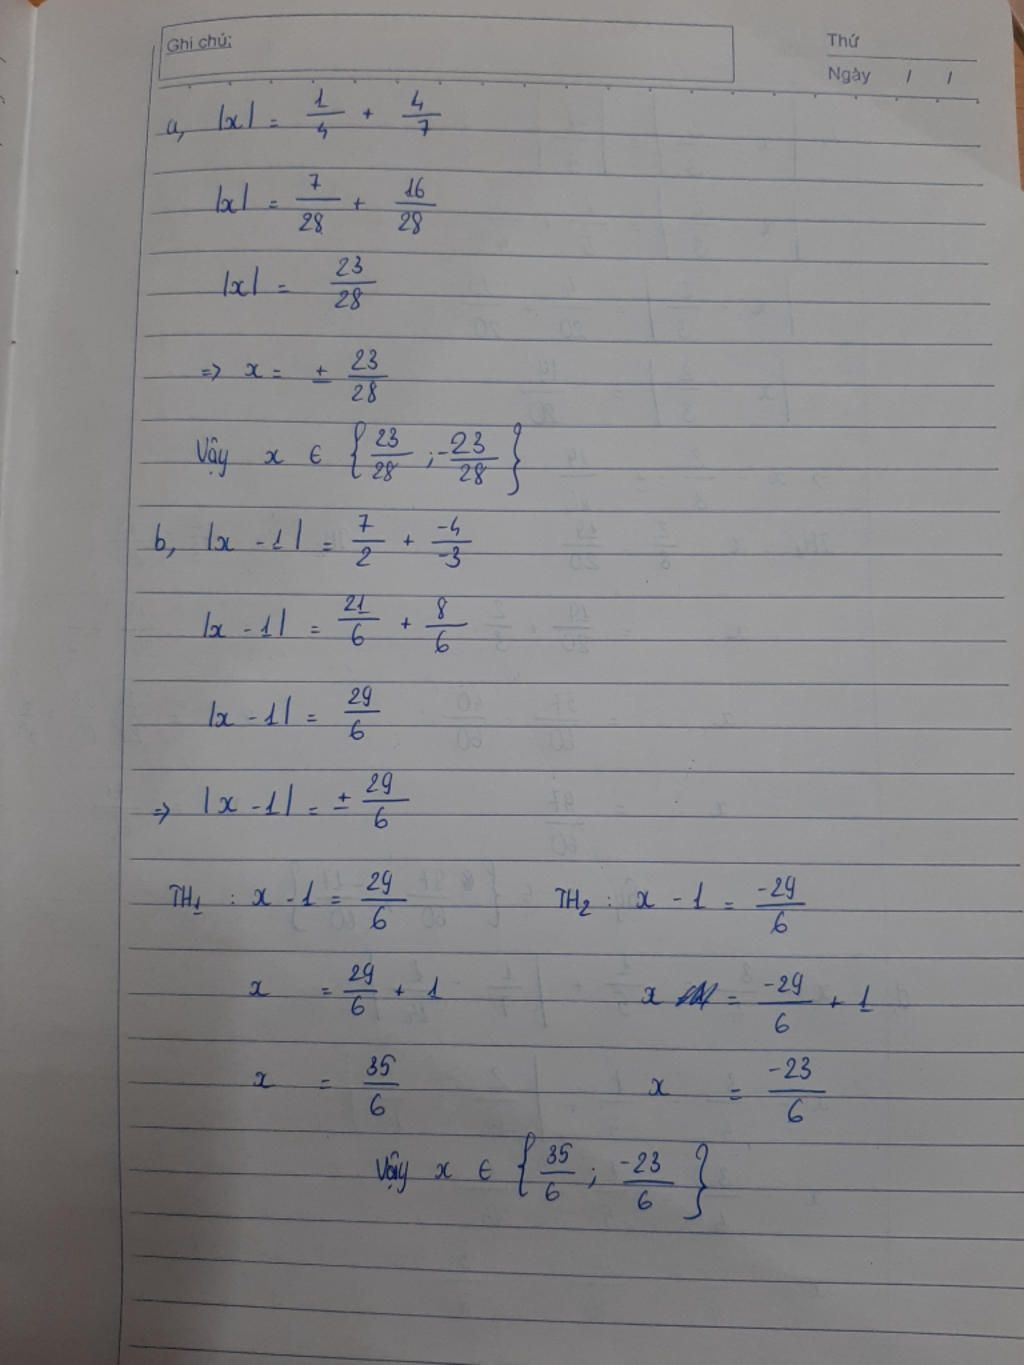 Ghi chú:
Thứ
Ngày / /
a, |x| = 1/4 + 4/7
|x| = 7/28 + 16/28
|x| = 23/28
=> x = ± 23/28
Vậy x ∈ {23/28 ; -23/28}
b, |x - 1| = 7/2 + -4/-3
|x - 1| = 21/6 + 8/6
|x - 1| = 29/6
=> |x - 1| = ± 29/6
TH1 : x - 1 = 29/6 TH2 : x - 1 = -29/6
x = 29/6 + 1 x = -29/6 + 1
x = 35/6 x = -23/6
Vậy x ∈ {35/6 ; -23/6}